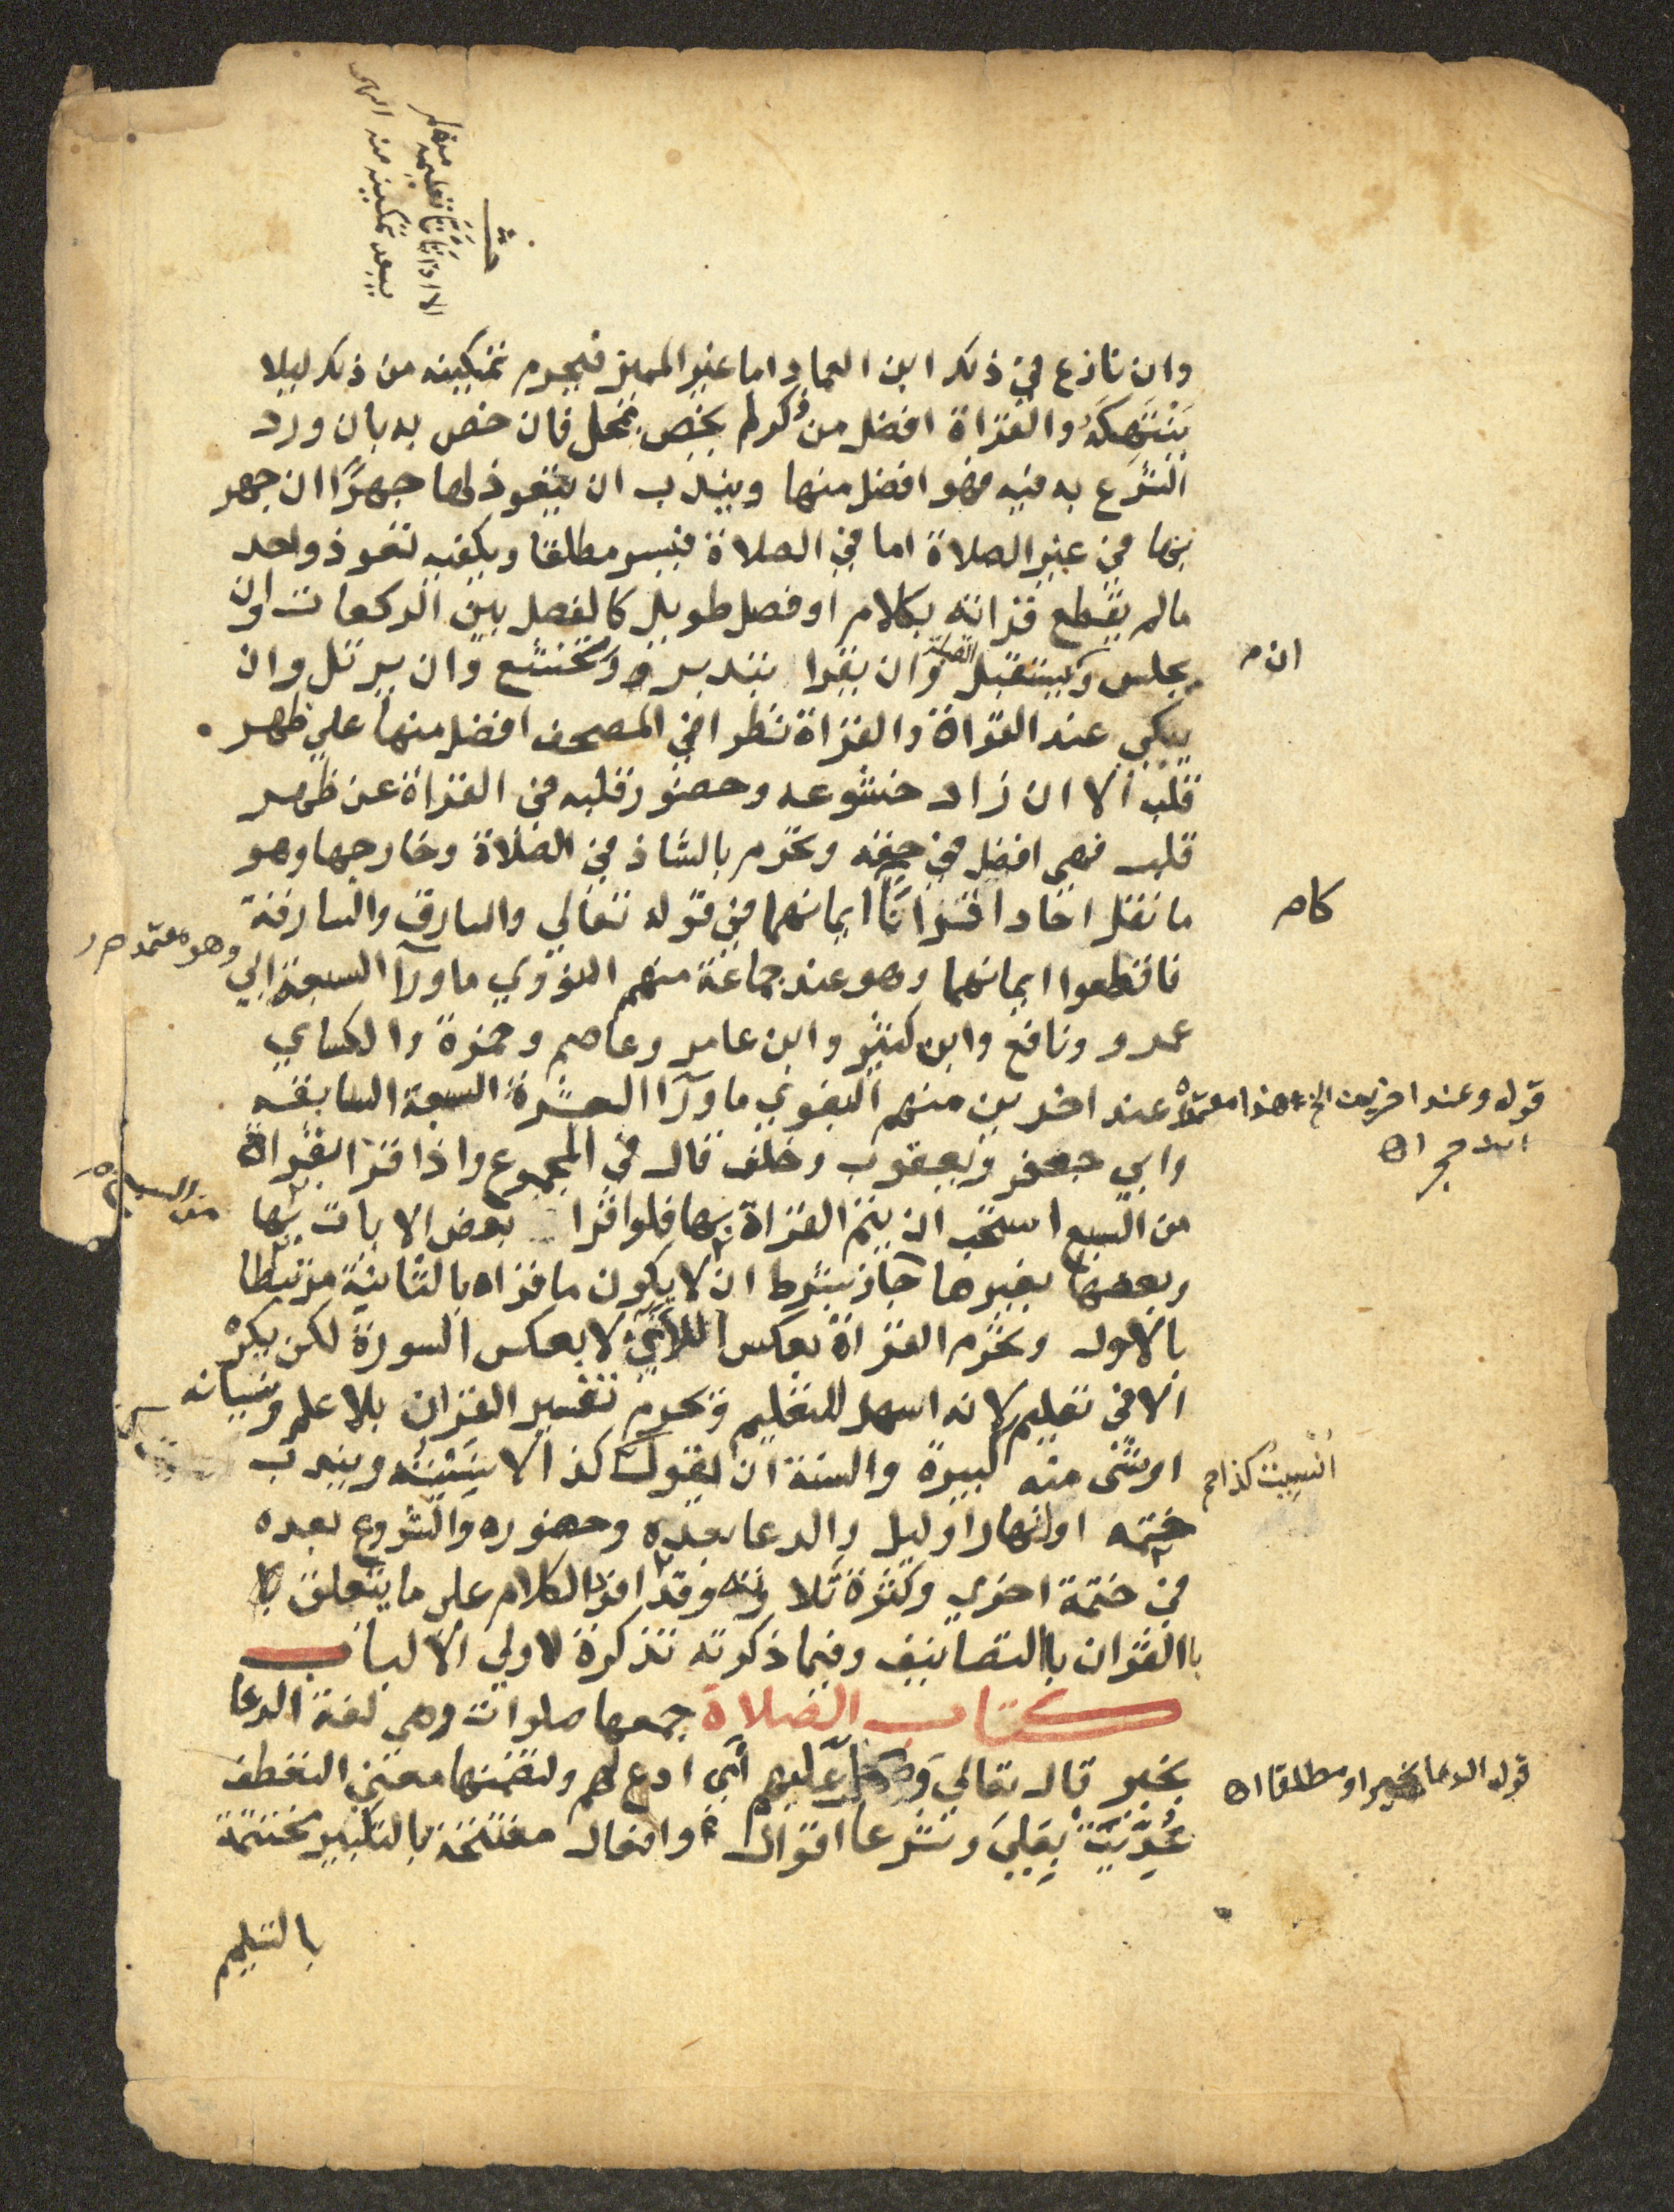 وان نازع في ذلك ابن العماد اما غير المميز فيحرم تمكينه من ذلك ليلا
ينتهكه والقراة افضل من ذكر لم يخص بمحل فان خص به بان ورد
الشرع به فيه فهو افضل منها ويندب ان يتعوذ لها جهرًا ان جهر
بها في غير الصلاة اما في الصلاة فيسر مطلقا ويكفيه تعوذ واحد
ما لم يقطع قراته بكلام او فصل طويل كالفصل بين الركعات وان
يجلس ويستقبل وان يقرا بتدبر وتخشع وان يرتل وان
ان
يبكي عند القراة والقراة نظرا في المصحف افضل منها علي ظهر
قلب الا ان زاد خشوعه وحضور قلبه في القراة عن ظهر
قلب فهي افضل في حقه وتحرم بالشاذ في الصلاة وخارجها وهو
ما نقل احادا قرانا ايمانهما في قوله تعالي والسارق والسارقة
كام
فاقطعوا ايمانهما وهو عند جماعة منهم النووي ماورآ السبعة ابي
وهو معتمد م ر
عمرو ونافع وابن كثير وابن عامر وعاصم وحمزة والكساي
وعند اخرين منهم البغوي ماورآ العشرة السبعة السابقه
قوله وعند اخرين الخ هذا معتمد
ابن حجر اه
وابي جعفر ويعقوب وخلف قال في المجموع واذا قرا بقراة
من السبع استحب ان يتم القراة بها فلو قرا بعض الايات بها
وبعضها بغيرها جاز بشرط ان لا يكون ما قراه بالثانية مرتبطا
بالاولي وتحرم القراة بعكس الآي لا بعكس السورة لكن يكره
الا في تعليم لانه اسهل للتعليم ويحرم تفسير القران بلا علم ونسيانه
او شئ منه كبيرة والسنة ان يقول كذا لا نسيته ويندب
انسيت كذا صح
ختمه اول نهار او ليل والدعا بعده وحضوره والشروع بعده
في ختمة اخري وكثرة تلاوته وقد افرد الكلام على ما يتعلق
باالقران باالتصانيف وفيما ذكرته تذكرة لاولي الالباب
كتاب الصلاة جمعها صلوات وهي لغة الدعا
بخير قال تعالي وصل عليهم اي ادع لهم ولتضمنها معني التعطف
قوله الدعا بخير او مطلقا اه
عديت بعلي وشرعا اقوال وافعال مفتتحة بالتكبير مختتمة
بالتسليم